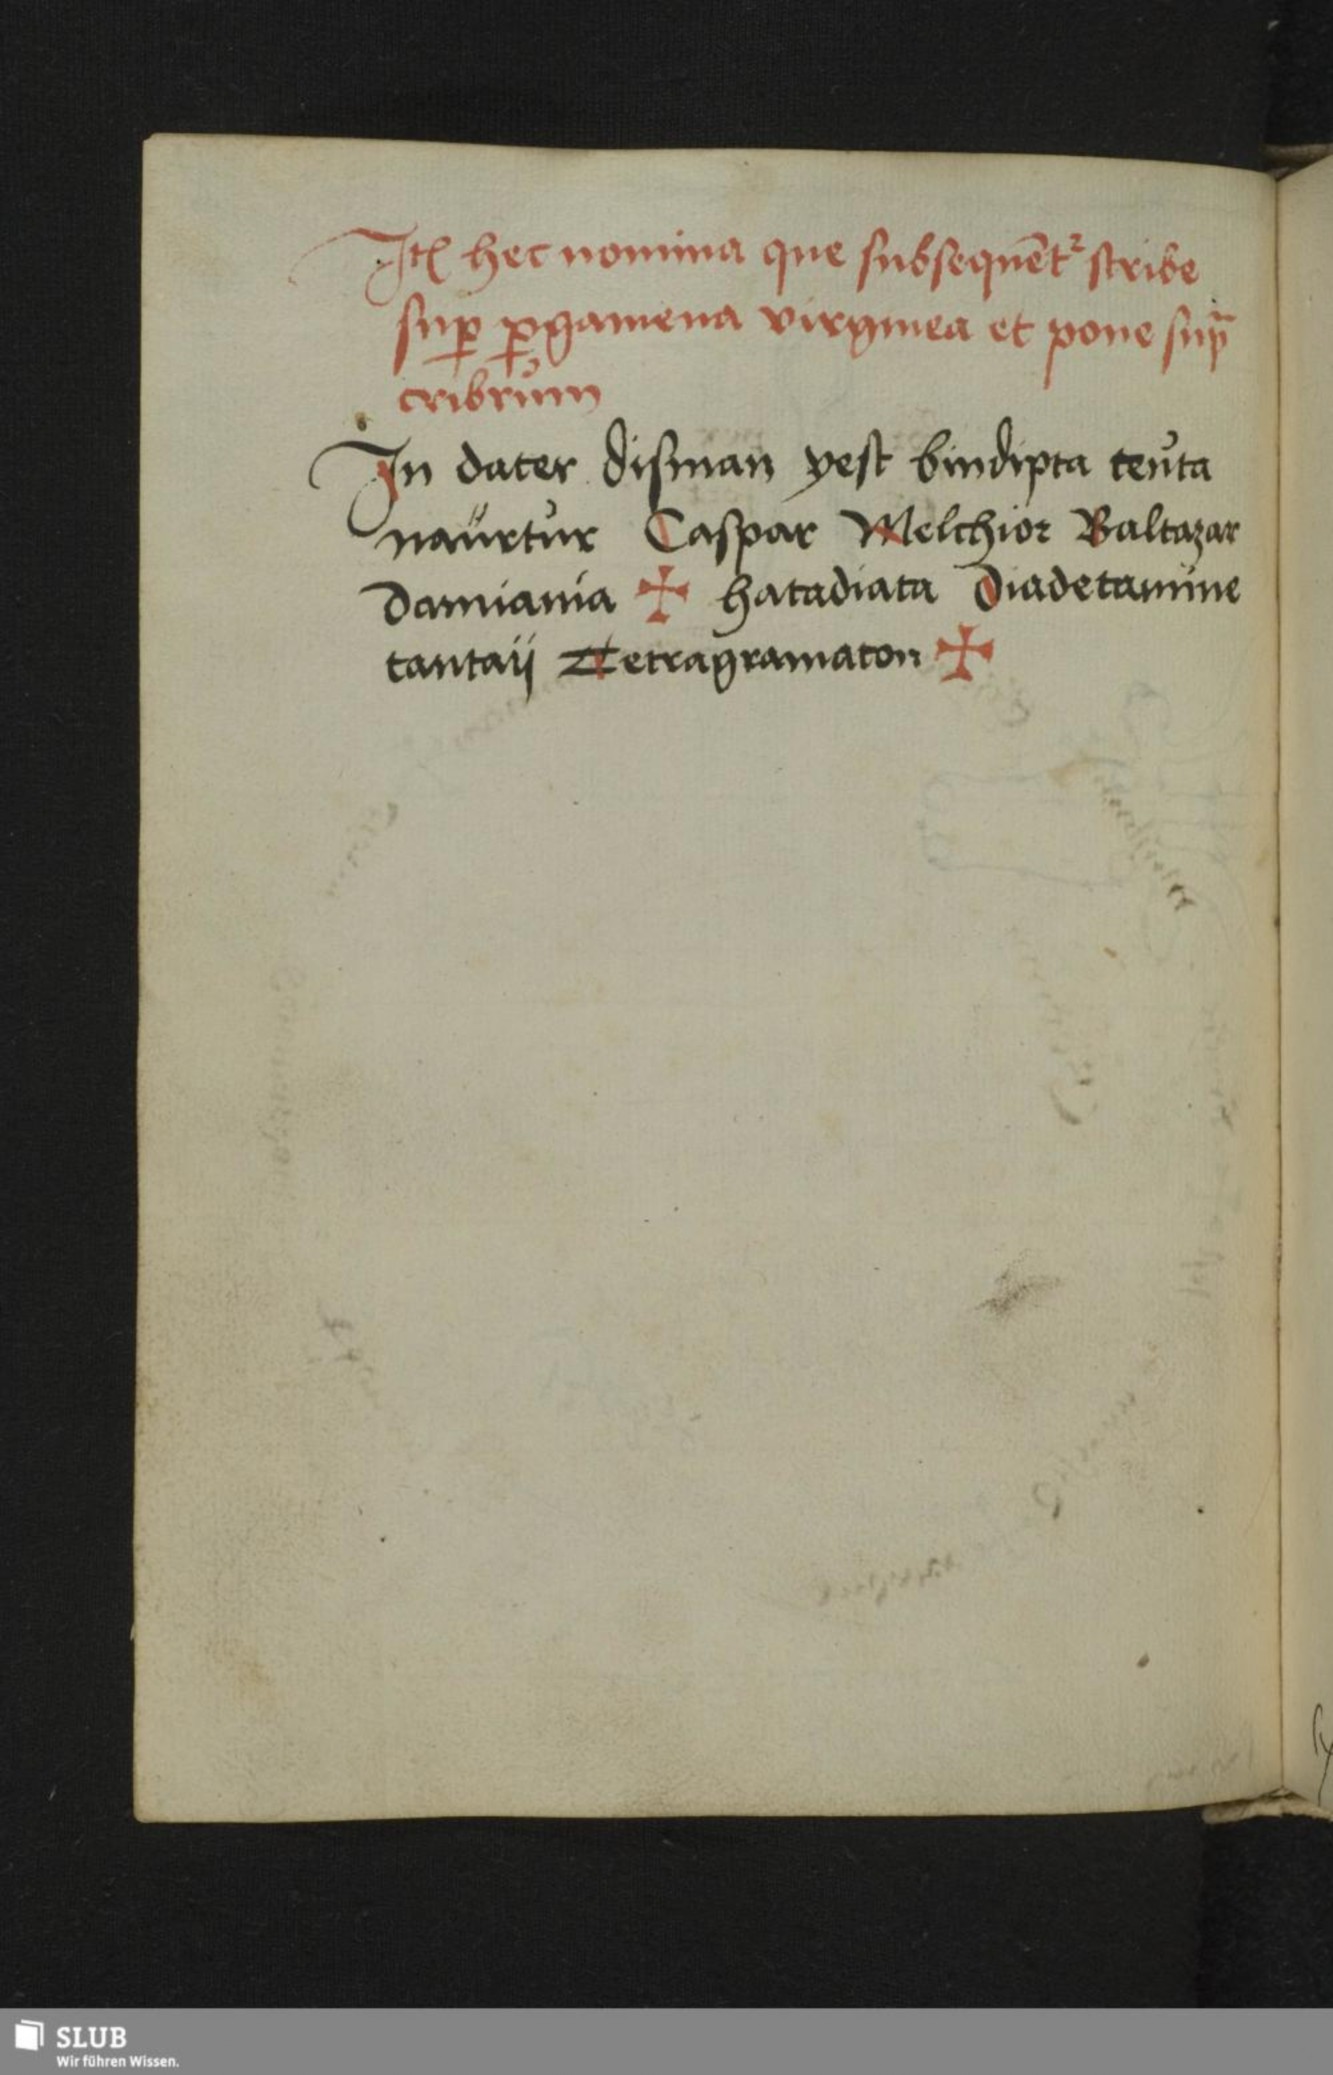 Itꝭ hec nomina que subsequēt᷑ scribe
suꝑ ꝑgamena virginea et pone sup̄
cribrum
In dater disman yest bindipta teuta
naurtur Caspar Melchior Baltazar
Damiania ✠ hatadiata Diadetamine
tantaij Tetragramaton ✠
SLUB
Wir führen Wissen.